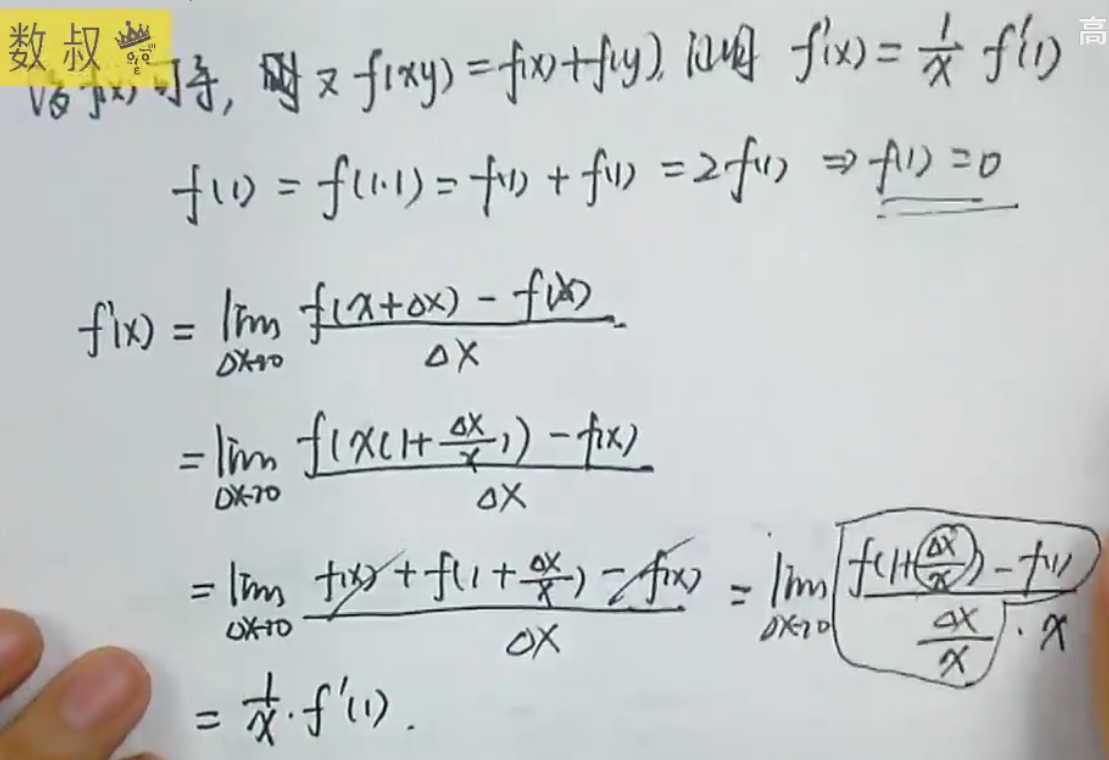 数叔
高
设f(x)可导, 对 x f(xy)=f(x)+f(y), 证明 f'(x) = 1/x f'(1)
f(1) = f(1·1) = f(1) + f(1) = 2f(1) ⇒ f(1) = 0
f'(x) = lim Δx→0 (f(x+Δx) - f(x)) / Δx
= lim Δx→0 (f(x(1+Δx/x)) - f(x)) / Δx
= lim Δx→0 (f(x) + f(1+Δx/x) - f(x)) / Δx = lim Δx→0 (f(1+Δx/x) - f(1)) / (Δx/x · x)
= 1/x · f'(1).